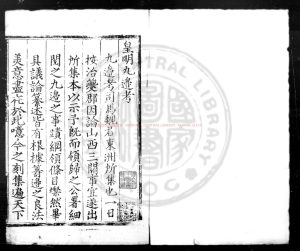 皇明九邊考
九邊考司馬魏君東洲所集也一日
按治郡因論山西三關事宜遂出
所集本以示予既而領歸之公署細
閱之九邊事蹟綱領條目燦然畢
具議論纂集皆有根據籌邊之良法
美意盡在於此噫今之刻集遍天下